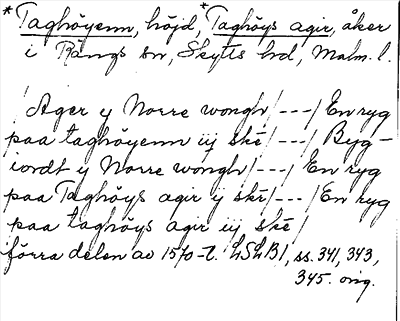 *Taghöyenn, höjd, *Taghöys agir, åker
i Rängs sn, Skytts hd, Malm. l.
/Ager y Norre wongh/---/ En ryg
paa taghöyenn iij ske/---/ Byg-
iordt y Norre wongh/---/ En ryg
paa Taghöys agir ij ske/---/ En ryg
paa taghöys agir iij ske/
förra delen av 1570-t. LSLB1, ss. 341, 343,
345. orig.